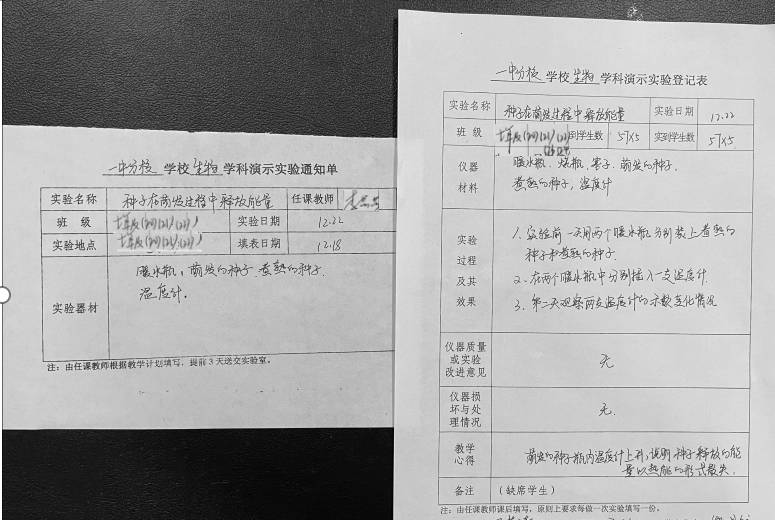 一中分校 学校 生物 学科演示实验通知单
实验名称 种子在萌发过程中释放能量 任课教师
班 级 实验日期 12.22
实验地点 填表日期 12.18
实验器材 暖水瓶，萌发的种子 煮熟的种子
温度计。
注：由任课教师根据教学计划填写，提前3天送交实验室。
一中分校 学校 生物 学科演示实验登记表
实验名称 种子在萌发过程中释放能量 实验日期 12.22
班 级 到学生数 57×5 实到学生数 57×5
仪器
材料
暖水瓶、烧瓶、塞子、萌发的种子、
煮熟的种子，温度计
实验
过程
及其
效果
1. 实验前一天用两个暖水瓶分别装上煮熟的
种子和煮熟的种子.
2. 在两个暖水瓶中分别插入一支温度计
3. 第二天观察两支温度计的示数变化情况
仪器质量
或实验
改进意见
无
仪器损
坏与处
理情况
无.
教学
心得
萌发的种子瓶内温度计上升，说明种子释放的能
量以热能的形式散失.
备注 （缺席学生）
注：由任课教师课后填写，原则上要求每做一次实验填写一份。